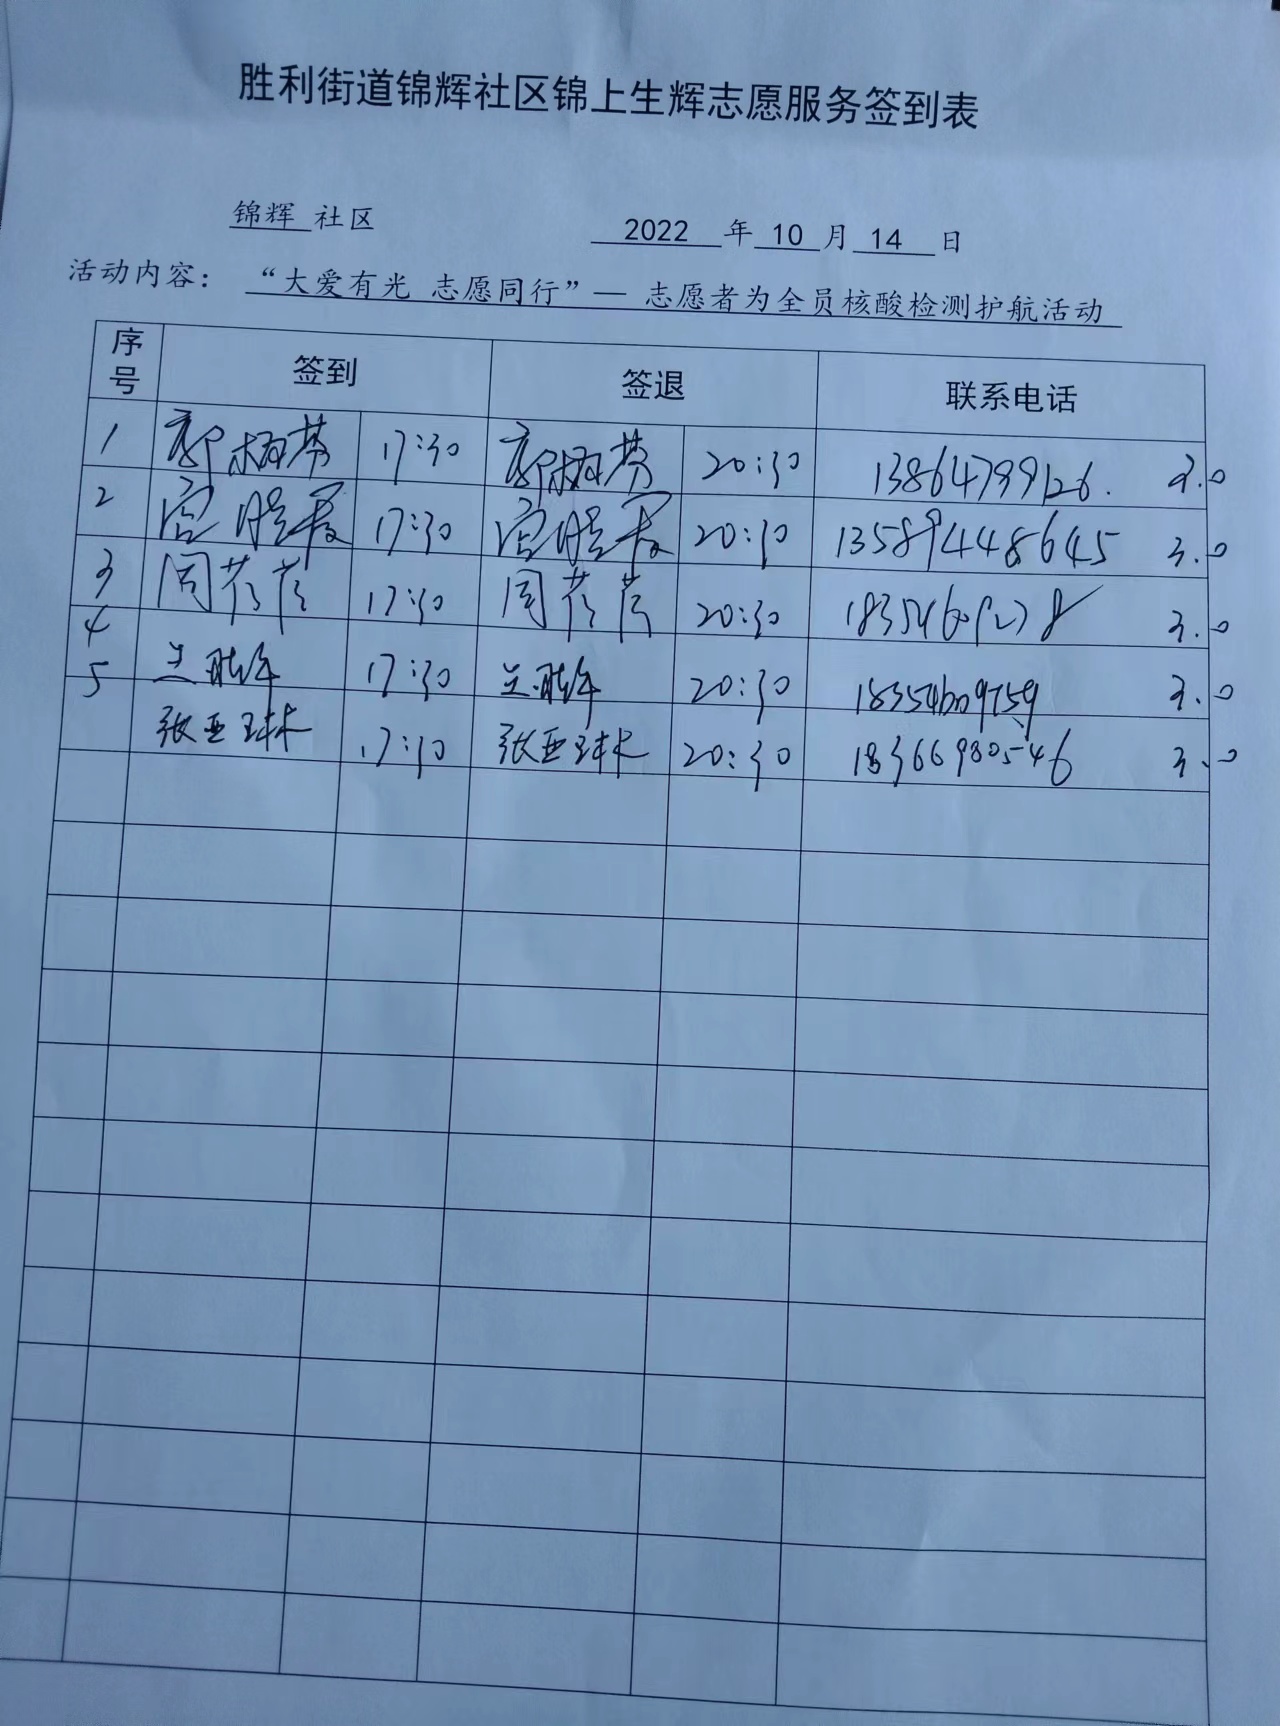 胜利街道锦辉社区锦上生辉志愿服务签到表
锦辉 社区 2022 年 10 月 14 日
活动内容： “大爱有光 志愿同行”— 志愿者为全员核酸检测护航活动
序号 签到 签退 联系电话
1 17:30 20:30 13864799126. 3.0
2 17:30 20:30 13589448645 3.0
3 17:30 20:30 3.0
4 17:30 20:30 3.0
5 张亚琳 17:30 张亚琳 20:30 18366980546 3.0